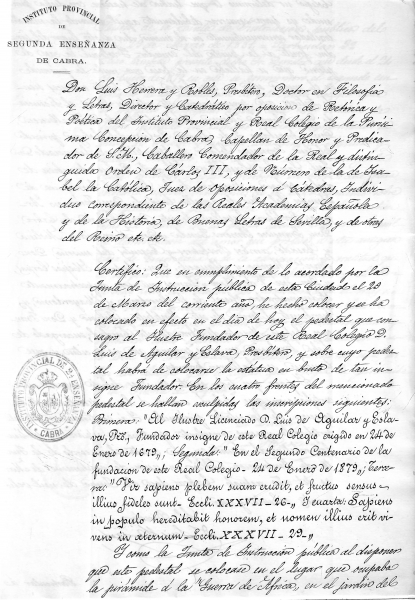 INSTITUTO PROVINCIAL
DE
SEGUNDA ENSEÑANZA
DE CABRA.
Don Luis Herrera y Robles, Presbítero, Doctor en Filosofía
y Letras, Director y Catedrático por oposición de Retórica y
Poética del Instituto Provincial y Real Colegio de la Purísi-
ma Concepcion de Cabra, Capellan de Honor y Predica-
dor de S. M., Caballero Comendador de la Real y distin-
guida Orden de Cárlos III, y de Número de la de Isa-
bel la Católica, Juez de oposiciones á Cátedras, Indivi-
duo correspondiente de las Reales Academias Española
y de la Historia, de Buenas Letras de Sevilla, y de otras
del Reino etc. etc.
Certifico: Que en cumplimiento de lo acordado por la
Junta de Instrucción pública de esta Ciudad el 20
de Marzo del corriente año, he hecho colocar y se ha
colocado en efecto en el día de hoy el pedestal que con-
sagro al Ilustre Fundador de este Real Colegio D.
Luis de Aguilar y Eslava, Presbítero, y sobre cuyo pedes-
tal habrá de colocarse la estatua en busto de tan in-
signe Fundador. En los cuatro frentes del mencionado
pedestal se hallan esculpidas las inscripciones siguientes:
Primera: "Al Ilustre Licenciado D. Luis de Aguilar y Esla-
va, Pro., Fundador insigne de este Real Colegio erigido en 24 de
Enero de 1679„; Segunda: "En el Segundo Centenario de la
fundacion de este Real Colegio- 24 de Enero de 1879„; Terce-
ra: "Vir sapiens plebem suam erudit, et fructus sensus
illius fideles sunt- Eccli. XXXVII-26-„ Y cuarta: Sapiens
in populo hereditabit honorem, et nomen illius erit vi-
vens in æternum- Eccli. XXXVII-29-„
Y como la Junta de Instrucción pública al disponer
que este pedestal se colocase en el lugar que ocupaba
la pirámide á la "Guerra de Africa„ en el jardín del
INSTITUTO PROVINCIAL DE 2ª ENSEÑANZA
CABRA